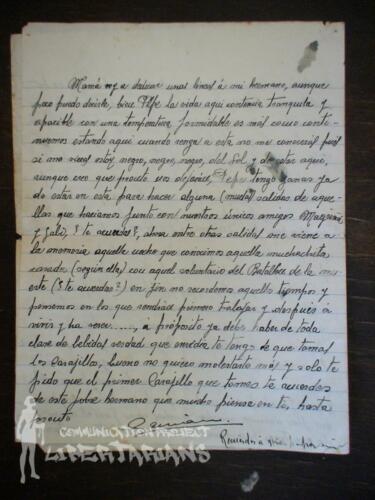 Mamá voy a dedicar unas lineas á mi hermano, aunque
poco puedo decirte, bien Pepe la vida aqui continua tranquila y
apacible con una temperatura formidable es más como conti-
nuemos estando aqui cuando venga a esta no me conocerás pues
si me vieras estoy, negro, negro, negro, del Sol y de estar aqui,
aunque creo que pronto os dejaré, Pepe tengo ganas ya
de estar en esta para hacer alguna salida de aque-
llas que haciamos junto con nuestros únicos amigos
y Galó, ? te acuerdas?, ahora entre otras salidas me viene a
la memoria aquella noche que conocimos aquella muchachita
casada (según ella) con aquel voluntario del Batallón de la mu-
erte (? te acuerdas?) en fin no recordemos aquellos tiempos y
pensemos en los que vendrán primero trabajar y después á
vivir y ha ver....., a propósito ya debes saber de toda
clase de bebidas verdad que envidia te tengo de que tomas
los Carajillos, bueno no quiero molestarte más y solo te
pido que el primer Carajillo que tomes te acuerdes
de este pobre hermano que mucho piensa en ti, hasta
pronto
Recuerdos á
COMMUNICATION PROJECT
LIBERTARIANS